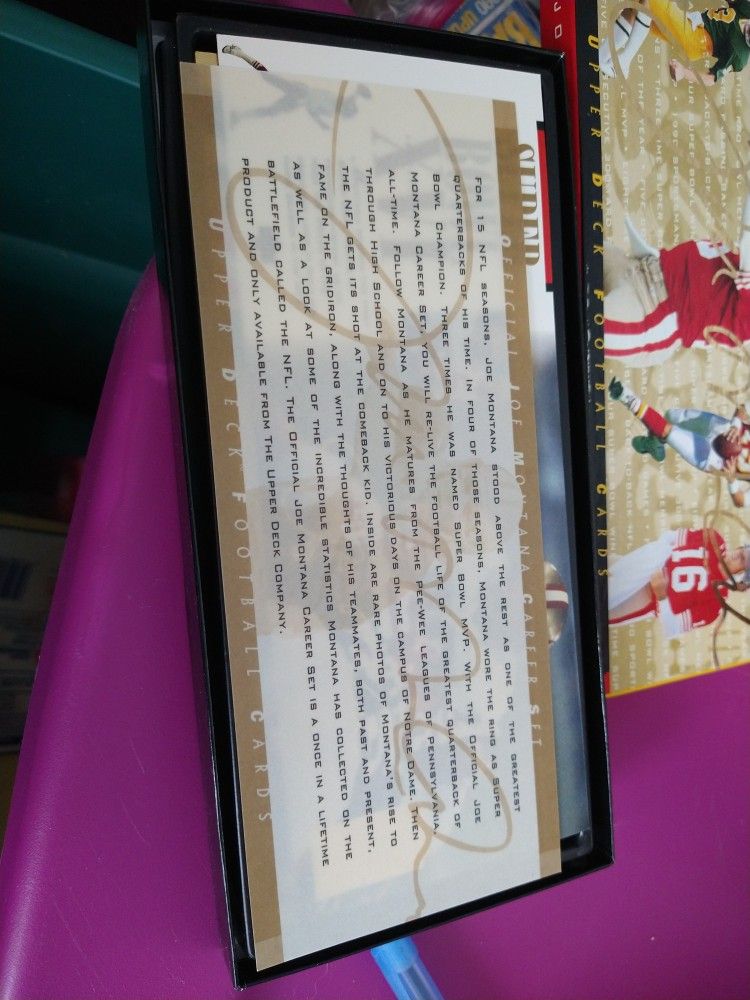 OFFICIAL JOE MONTANA CAREER SET
FOR 15 NFL SEASONS, JOE MONTANA STOOD ABOVE THE REST AS ONE OF THE GREATEST
QUARTERBACKS OF HIS TIME. IN FOUR OF THOSE SEASONS, MONTANA WORE THE RING AS SUPER
BOWL CHAMPION. THREE TIMES HE WAS NAMED SUPER BOWL MVP. WITH THE OFFICIAL JOE
MONTANA CAREER SET, YOU WILL RE-LIVE THE FOOTBALL LIFE OF THE GREATEST QUARTERBACK OF
ALL-TIME. FOLLOW MONTANA AS HE MATURES FROM THE PEE-WEE LEAGUES OF PENNSYLVANIA,
THROUGH HIGH SCHOOL AND ON TO HIS VICTORIOUS DAYS ON THE CAMPUS OF NOTRE DAME. THEN
THE NFL GETS ITS SHOT AT THE COMEBACK KID. INSIDE ARE RARE PHOTOS OF MONTANA'S RISE TO
FAME ON THE GRIDIRON, ALONG WITH THE THOUGHTS OF HIS TEAMMATES, BOTH PAST AND PRESENT,
AS WELL AS A LOOK AT SOME OF THE INCREDIBLE STATISTICS MONTANA HAS COLLECTED ON THE
BATTLEFIELD CALLED THE NFL. THE OFFICIAL JOE MONTANA CAREER SET IS A ONCE IN A LIFETIME
PRODUCT AND ONLY AVAILABLE FROM THE UPPER DECK COMPANY.
UPPER DECK FOOTBALL CARDS
SUPER
UPPER DECK FOOTBALL CARDS
16
JO